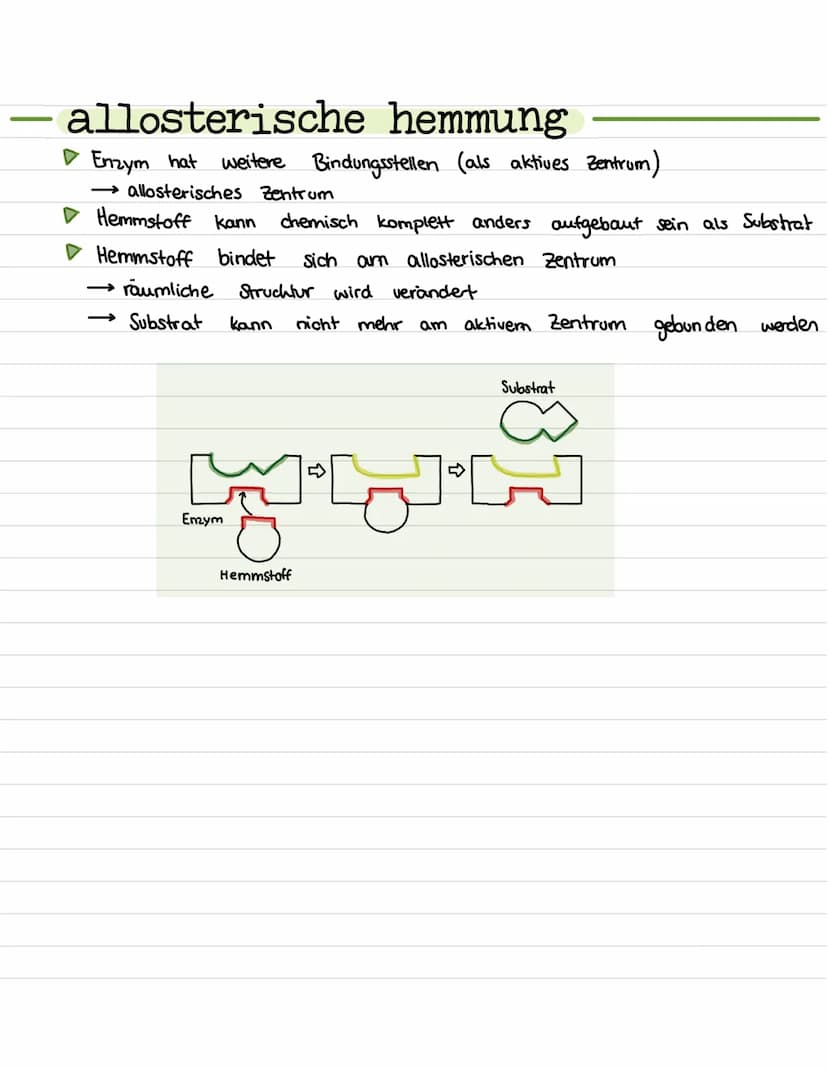 allosterische hemmung
Enzym hat weitere Bindungsstellen (als aktives Zentrum)
→ allosterisches Zentrum
Hemmstoff kann chemisch komplett anders aufgebaut sein als Substrat
Hemmstoff bindet sich am allosterischen Zentrum
→ räumliche Strucktur wird verändert
→ Substrat kann nicht mehr am aktivem Zentrum gebunden werden
Substrat
Enzym
Hemmstoff